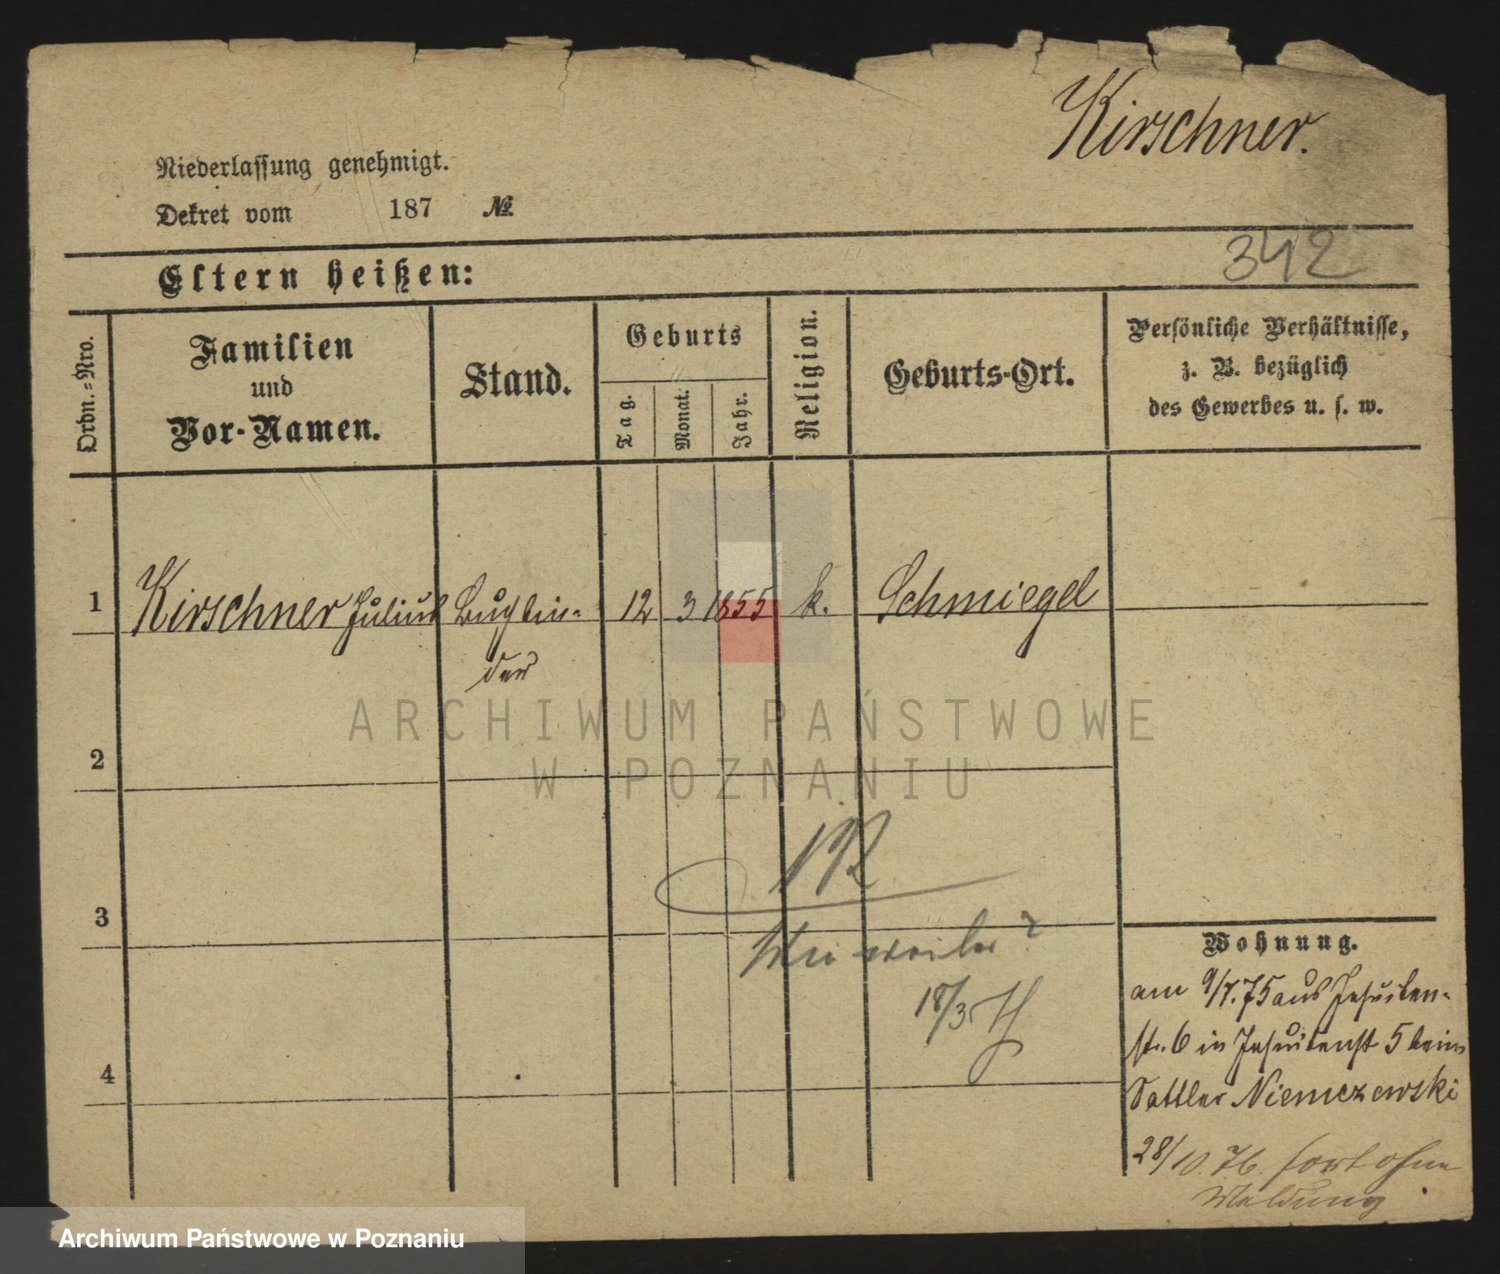 Kirschner.
Niederlassung genehmigt.
Dekret vom 187 №
342
Eltern heißen:
Ordn.=Nro.
Familien
und
Vor-Namen.
Stand.
Geburts
Tag.
Monat.
Jahr.
Religion.
Geburts-Ort.
Persönliche Verhältnisse,
z. B. bezüglich
des Gewerbes u. s. w.
1 Kirschner Julius Buchbin=
der
12 3 1855 k. Schmiegel
2
ARCHIWUM PAŃSTWOWE
W POZNANIU
3
18/3
4
Wohnung.
am 9/7.75 aus Jesuiten-
str. 6 in Jesuitenst 5 beim
Sattler Niemczewski
28/10.76. fort ohne
Meldung.
Archiwum Państwowe w Poznaniu